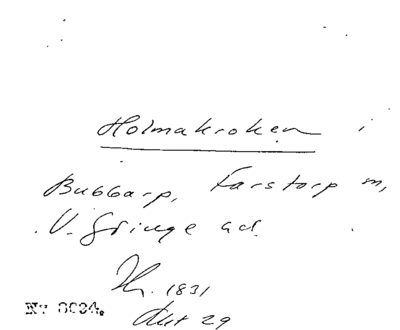 Holmakroken i
Bubbarp, Farstorp m,
V. Göinge hd.
1831
Akt 29